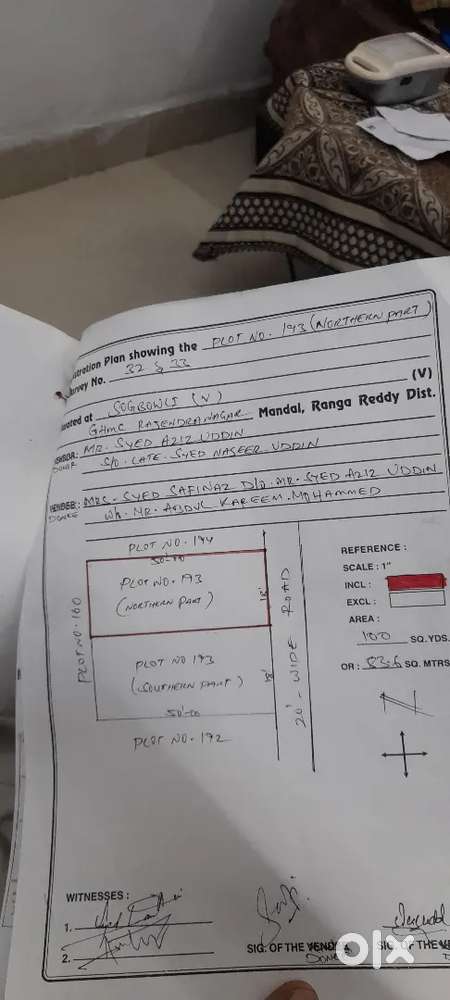 stration Plan showing the PLOT NO. 193 (NORTHERN PART)
urvey No. 32 & 33
uated at SOGBOWLI (V) (V)
GHMC RAJENDRANAGAR Mandal, Ranga Reddy Dist.
ENDOR: MR. SYED AZIZ UDDIN
DONOR S/o. LATE. SYED NASEER UDDIN
VENDEE: MRS. SYED SAFINAZ D/o. MR. SYED AZIZ UDDIN
DONEE W/o. MR. ABDUL KAREEM. MOHAMMED
PLOT NO. 194
50'-00
PLOT NO. 193
(NORTHERN PART)
18'
PLOT NO. 160
20' - WIDE ROAD
PLOT NO 193
(SOUTHERN PART)
18'
50'-00
PLOT NO. 192
REFERENCE :
SCALE : 1"
INCL :
EXCL :
AREA :
100 SQ. YDS.
OR : 83.6 SQ. MTRS
N
WITNESSES :
1.
2.
SIG. OF THE VENDO
DONOR
SIG. OF THE VE
D
olx